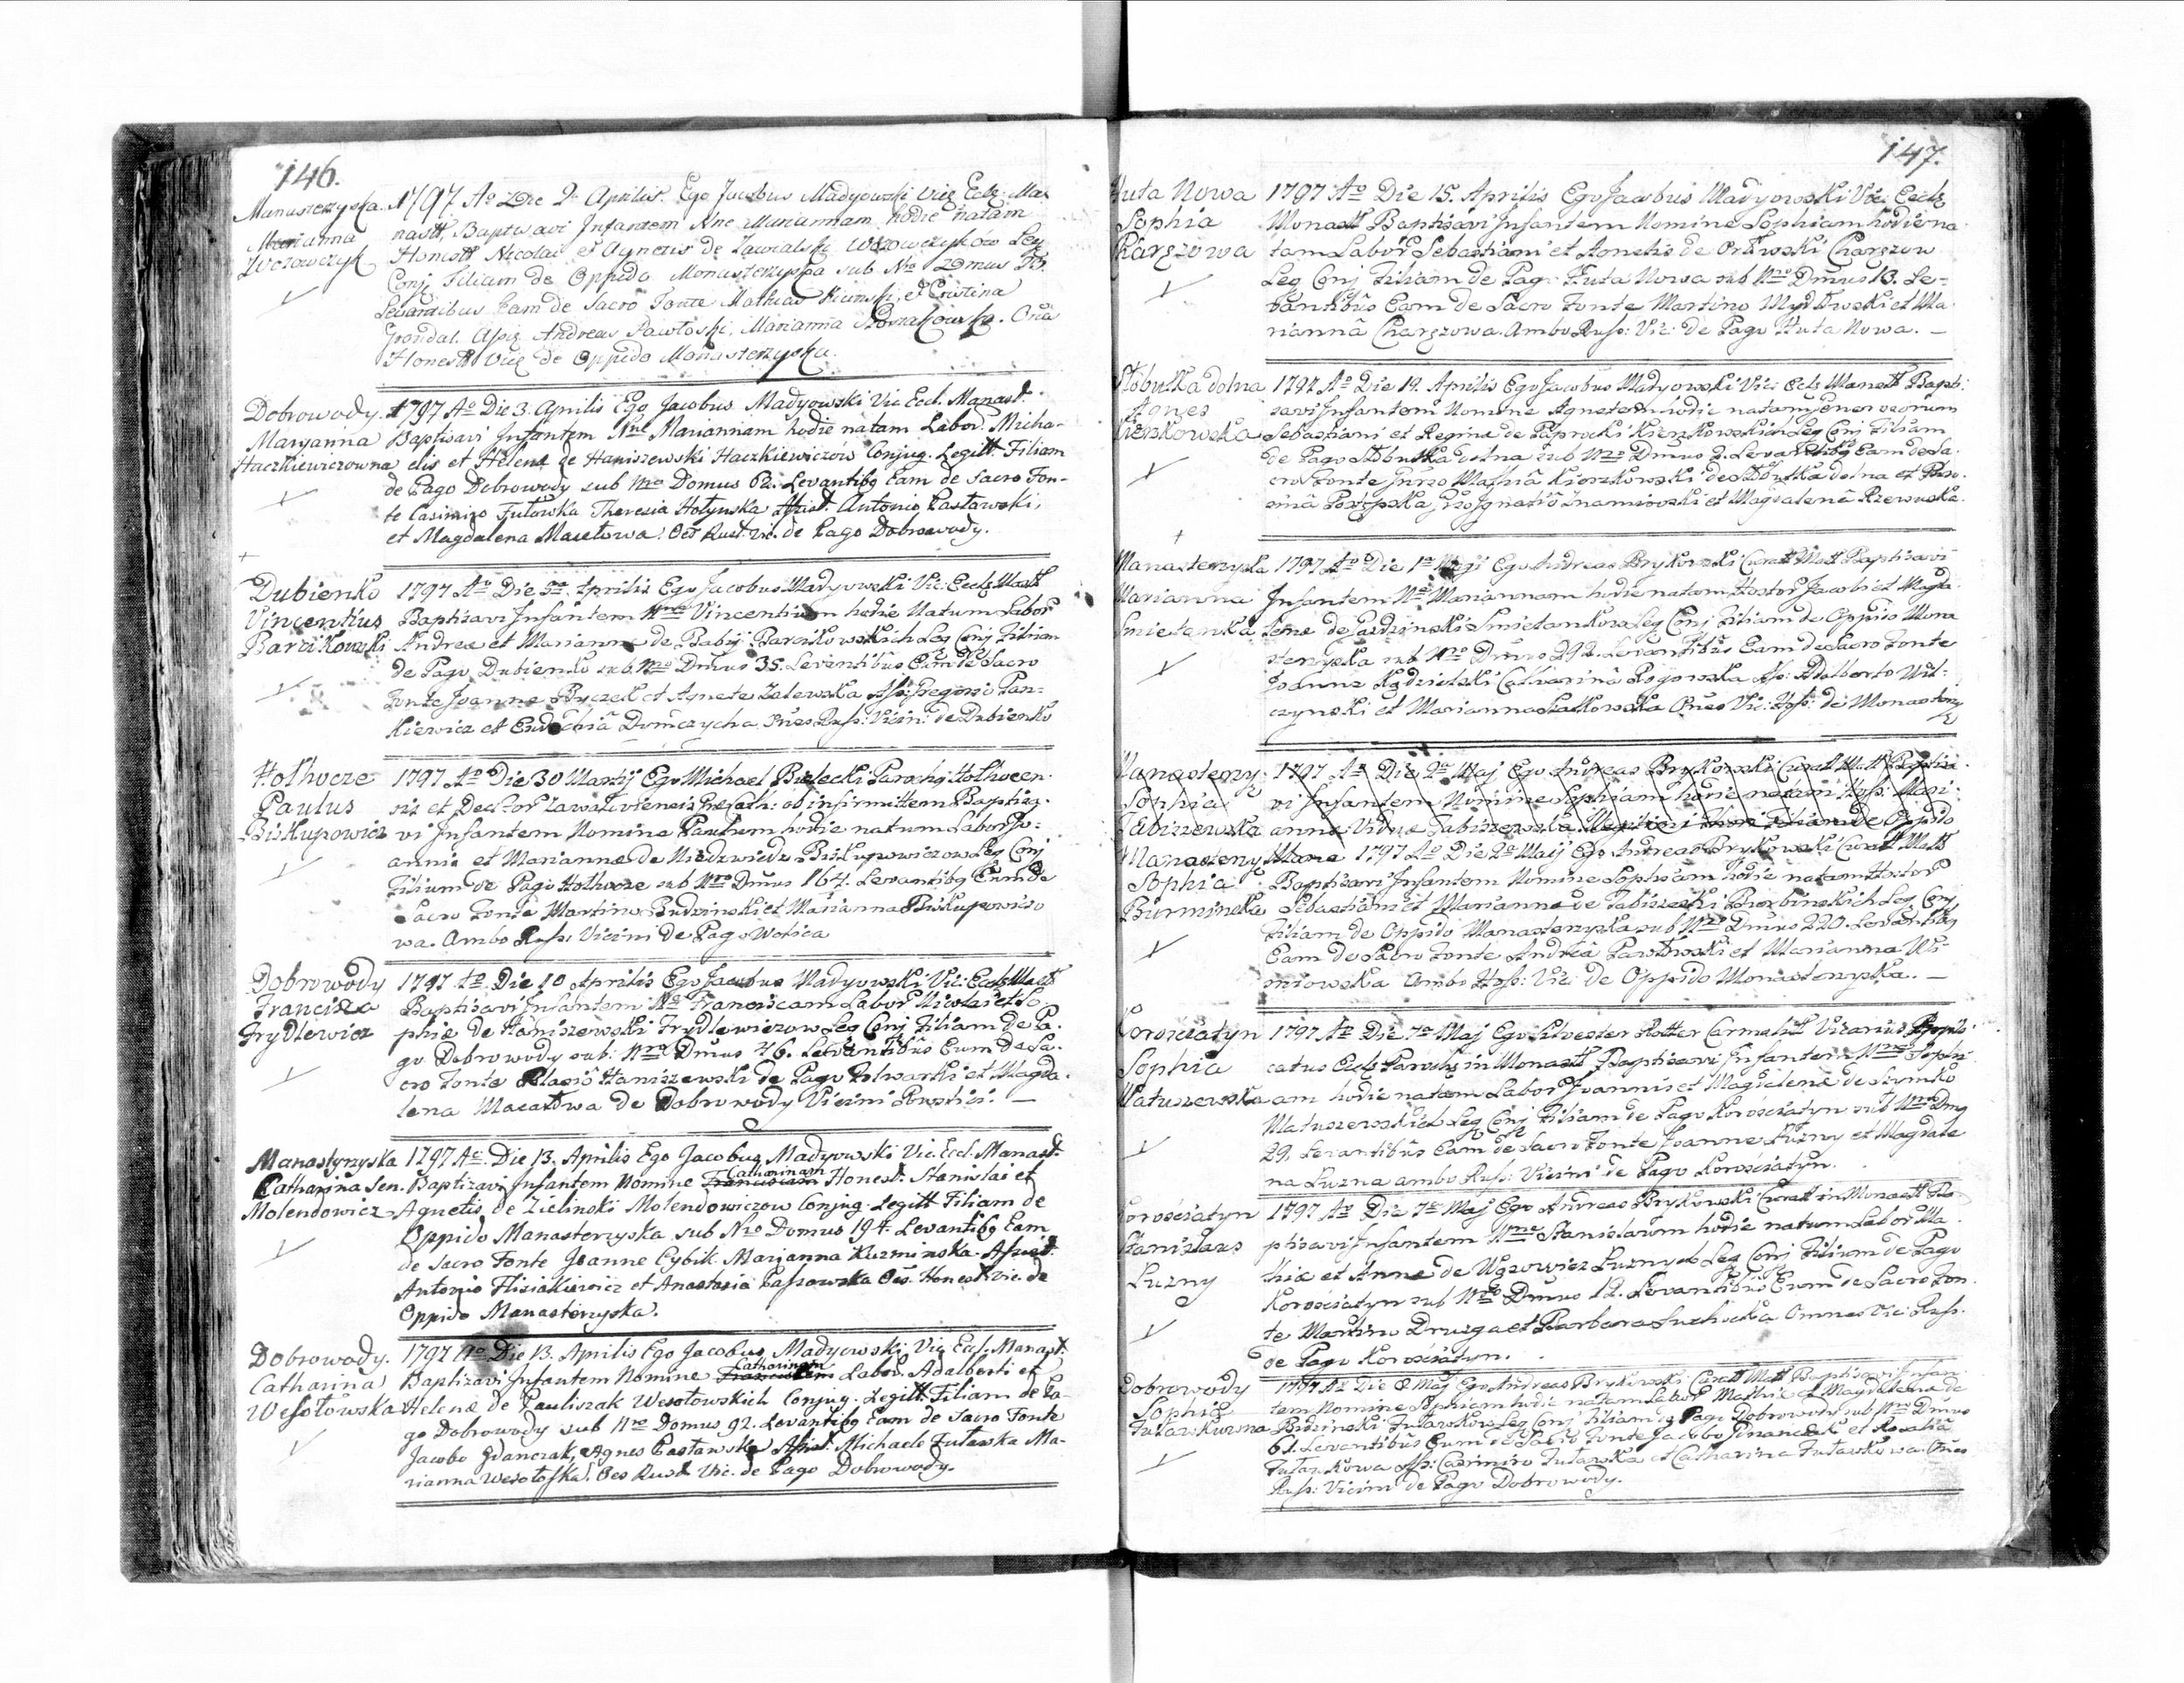 146.
Manasterzyska. 1797 Ao Die 2. Aprilis. Ego Jacobus Madyowski Vic Eccl. Ma-
Marianna nastt, Baptisavi Infantem Nne Mariannam hodie natam
Honestt Nicolai et Agnetis de Leg
Conj Filiam de Oppido Monasterzyska sub Nro Domus
Levantibus Eam de Sacro Fonte Mathias et Cristina
Andreas Pawłoski, Marianna
Honestt Vic de Oppido Monasterzyska.
Dobrowody. 1797 Ao Die 3. Aprilis Ego Jacobus Madyowski Vic Eccl. Manast.
Maryanna Baptisavi Infantem Nne Mariannam hodie natam Labor. Micha-
Haczkiewiczowna elis et Helenæ de Haniszewski Haczkiewiczów Conjug. Legitt. Filiam
de Pago Dobrowody sub Nro Domus 62. Levantibg Eam de Sacro Fon-
te Casimiro Futowka Theresia Hołynska Assist. Antonio Pasławski,
et Magdalena Macełowa. Oēs Rust. Vic. de Pago Dobrowody.
Dubienko 1797 Ao Die 5ta Aprilis Ego Jacobus Madyowski Vic. Eccls Mastt
Vincentius Baptisavi Infantem Nne Vincentium hodie Natum Labor
Barcikowski Andreæ et Mariannæ de Babij Barcikowskich Leg Conj Filium
de Pago Dubienko sub Nro Dmus 35. Levantibus Eum de Sacro
Fonte Joanne et Agnete Zalewska Ass: Gregorio Pan-
kiewicz et Eudochiâ Dom̄czycha Oñes Rust: Vicin: de Dubienko
Hołhocze 1797 Ao Die 30 Martij Ego Michael Bielecki Parochg Hołhocen-
Paulus sis et Dec Zawałoviensis ob infirmittem Baptisa-
Biskupowicz vi Infantem Nomine Paulum hodie natum Labor Jo-
annis et Mariannæ de Niedzwiedz Biskupowiczow Leg Conj
Filium de Pago Hołhocze sub Nro Dmus 164. Levantibg Eum de
Sacro Fonte Martino Budzinski et Marianna Biskupowiczo
wa. Ambo Rust: Vicini de Pago Wolica
Dobrowody 1797 Ao Die 10 Aprilis Ego Jacobus Madyowski Vic: Eccls Mastt
Francisca Baptisavi Infantem Ne Franciscam Labor Nicolai et So-
Frydlewicz phiæ de Haniszewski Frydlewiczow Leg Conj Filiam de Pa-
go Dobrowody sub: Nro Dmus 46. Levantibus Eum de Sa-
cro Fonte Blasiô Haniszewski de Pago Folwarki et Magda-
lena Macałowa de Dobrowody Vicini Rustici. —
Manastyrzyska 1797 Ao. Die 13. Aprilis Ego Jacobus Madyowski Vic. Eccl. Manast.
Catharina Sen. Baptizavi Infantem Nomine Franciscam Catharinam Honest. Stanislai et
Molendowicz Agnetis de Zielinski Molendowiczow Conjug. Legitt Filiam de
Oppido Manasterzyska sub Nro Domus 194. Levantibg Eam
de Sacro Fonte Joanne Cybik. Marjanna Kuzminska. Assist.
Antonio Flisiakiewicz et Anastasia Passowska Oēs. Honest. Vic. de
Oppido Manasterzyska.
Dobrowody. 1797 Ao Die 13. Aprilis Ego Jacobus Madyowski Vic Eccl. Manast.
Catharina Baptizavi Infantem Nomine Franciscam Catharinam Labor. Adalberti et
Wesołowska Helenæ de Pauliszak Wesołowskich Conjug. Legitt. Filiam de Pa-
go Dobrowody sub Nro Domus 92. Levantibg Eam de Sacro Fonte
Jacobo Zdanczak, Agnes Pasławska Assist. Michaele Futawska Ma-
rianna Wesołoska. Oes Rust Vic. de Pago Dobrowody.
147.
Huta Nowa 1797 Ao Die 15. Aprilis Ego Jacobus Madyowski Vic. Eccls
Sophia Monastt Baptisavi Infantem Nomine Sophiam hodie na-
Charęzowa tam Labor Sebastiani et Agnetis de Orłowski Charęzow
Leg Conj Filiam de Pag: Huta Nowa sub Nro Dmus 13. Le-
vantibus Eam de Sacro Fonte Martino et Ma-
riannâ Charęzowa. Ambo Rust: Vic: de Pago Huta Nowa. —
Słobutka dolna 1797 Ao Die 19. Aprilis Ego Jacobus Madyowski Vic: Eccls Manastt Bapti-
Agnes savi Infantem Nomine Agnetem hodie natam Generosorum
Kierzkowska Sebastiani et Reginæ de Paprocki Kierzkowskich Leg Conj Filiam
de Pago Słobutka dolna sub Nro Dmus 2. Levantibg Eam de Sa-
cro Fonte Gnrso Mathiâ Kierzkowski de Słobutka dolna et
Gnrso Ignatiô Znamirowski et Magdalenâ Rzewuska.
Manasterzyska 1797 Ao Die 1ma Maji Ego Andreas Brykowski Curatt Mostt Baptisavi
Marianna Infantem Ne Mariannam hodie natam Honor Jacobi et Magda-
Smietanka lenæ de Smietankow Leg Conj Filiam de Oppido Mona-
sterzyska sub Nro Dmus 292. Levantibus Eam de Sacro Fonte
Joanne Kędzielski Catharinâ Ass: Adalberto Wil-
czynski et Marianna Oñes Vic: Hoss: de Monasterzy
Manasterzy: 1797 Ao Die 2da Maj Ego Andreas Brykowski Curatt Mostt Baptisa-
Sophia vi Infantem Nomine Sophiam hodie natam Hoss: Mari-
Tabiszewska annæ Viduæ Tabiszewska Filiam de Oppido
Manasterzy 1797 Ao Die 2da Maij Ego Andreas Brykowski Curatt Mostt
Sophia Baptisavi Infantem Nomine Sophiam hodie natam Honor
Burminska Sebastiani et Mariannæ de Tabiszeski Leg Conj
Filiam de Oppido Manasterzyska sub Nro Dmus 220. Levantibg
Eam de Sacro Fonte Andrea Pawłowski et Marianna Wi-
sniowska Ambo Hoss: Vic: de Oppido Monasterzyska. —
Korosciatyn 1797 Ao Die 7ma Maj Ego Silvester Rotter Carmelitt Vicarius
Sophia catus Eccls Parochs in Monastt Baptisavi Infantem Nne Sophi-
Matuszewska am hodie natam Labor Joannis et Magdalenæ de Szymko
Matuszewskich Leg Conj Filiam de Pago Korosciatyn sub Nro Dmg
29. Levantibus Eam de Sacro Fonte Joanne Łuzny et Magdale
na Łuzna ambo Rust: Vicini de Pago Korosciatyn.
Korosciatyn 1797 Ao Die 7ma Maj Ego Andreas Brykowski Curatt in Monastt Ba-
Stanislaus ptisavi Infantem Nne Stanislaum hodie natum Labor Ma-
Łuzny thiæ et Annæ de Łuznych Leg Conj Filium de Pago
Korosciatyn sub Nro Dmus 12. Levantibus Eum de Sacro Fon-
te Martino Druzga et Barbara Suchicka Omnes Vic: Rust.
de Pago Korosciatyn.
Dobrowody 1797 Ao Die 8 Maj Ego Andreas Brykowski Curatt Mostt Baptisavi Infan-
Sophia tem Nomine Sophiam hodie natam Labor Mathiæ et Magdalenæ de
Futarkowna Budzinski Futawkow Leg Conj Filiam de Pago Dobrowody sub Nro Dmus
61. Levantibus Eum de Sacro Fonte Jacobo et Rosaliâ
Ass: Casimiro Futawka et Catharina Futawkowa. Oñes
Rust: Vicini de Pago Dobrowody.